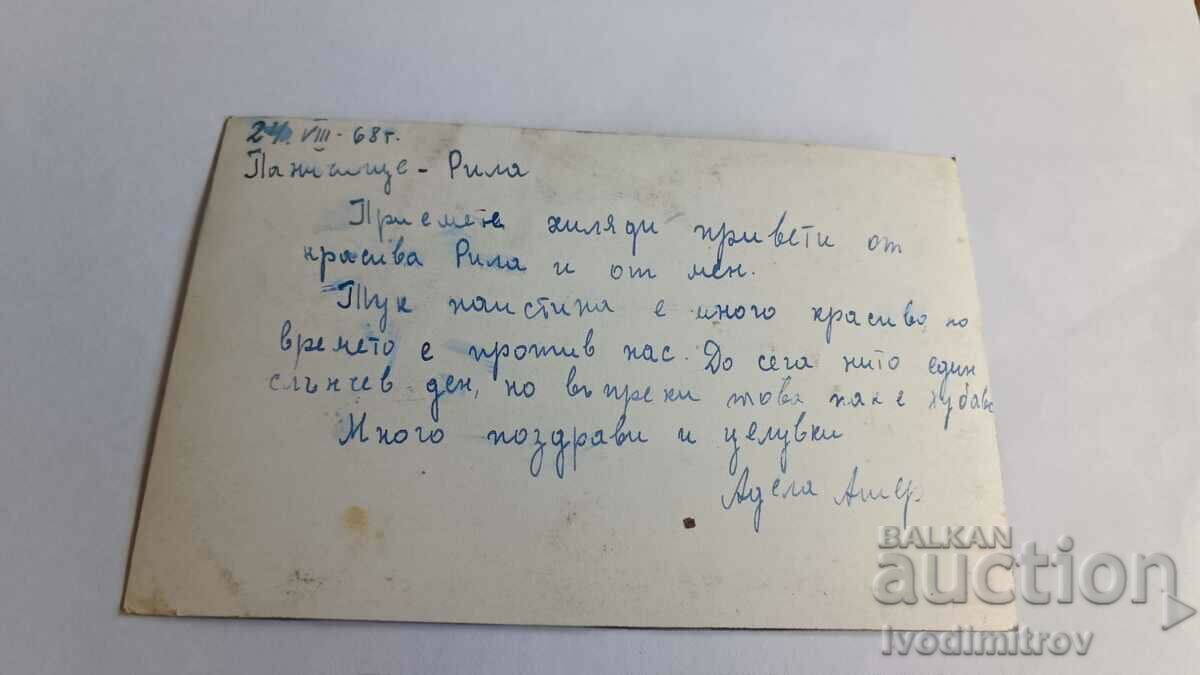 24. VIII - 68 г.
Паничище - Рила
Приемете хиляди привети от
красива Рила и от мен.
Тук наистина е много красиво, но
времето е против нас. До сега нито един
слънчев ден, но въпреки това пак е хубаво
Много поздрави и целувки
Адела Ашер
BALKAN
auction
Ivodimitrov